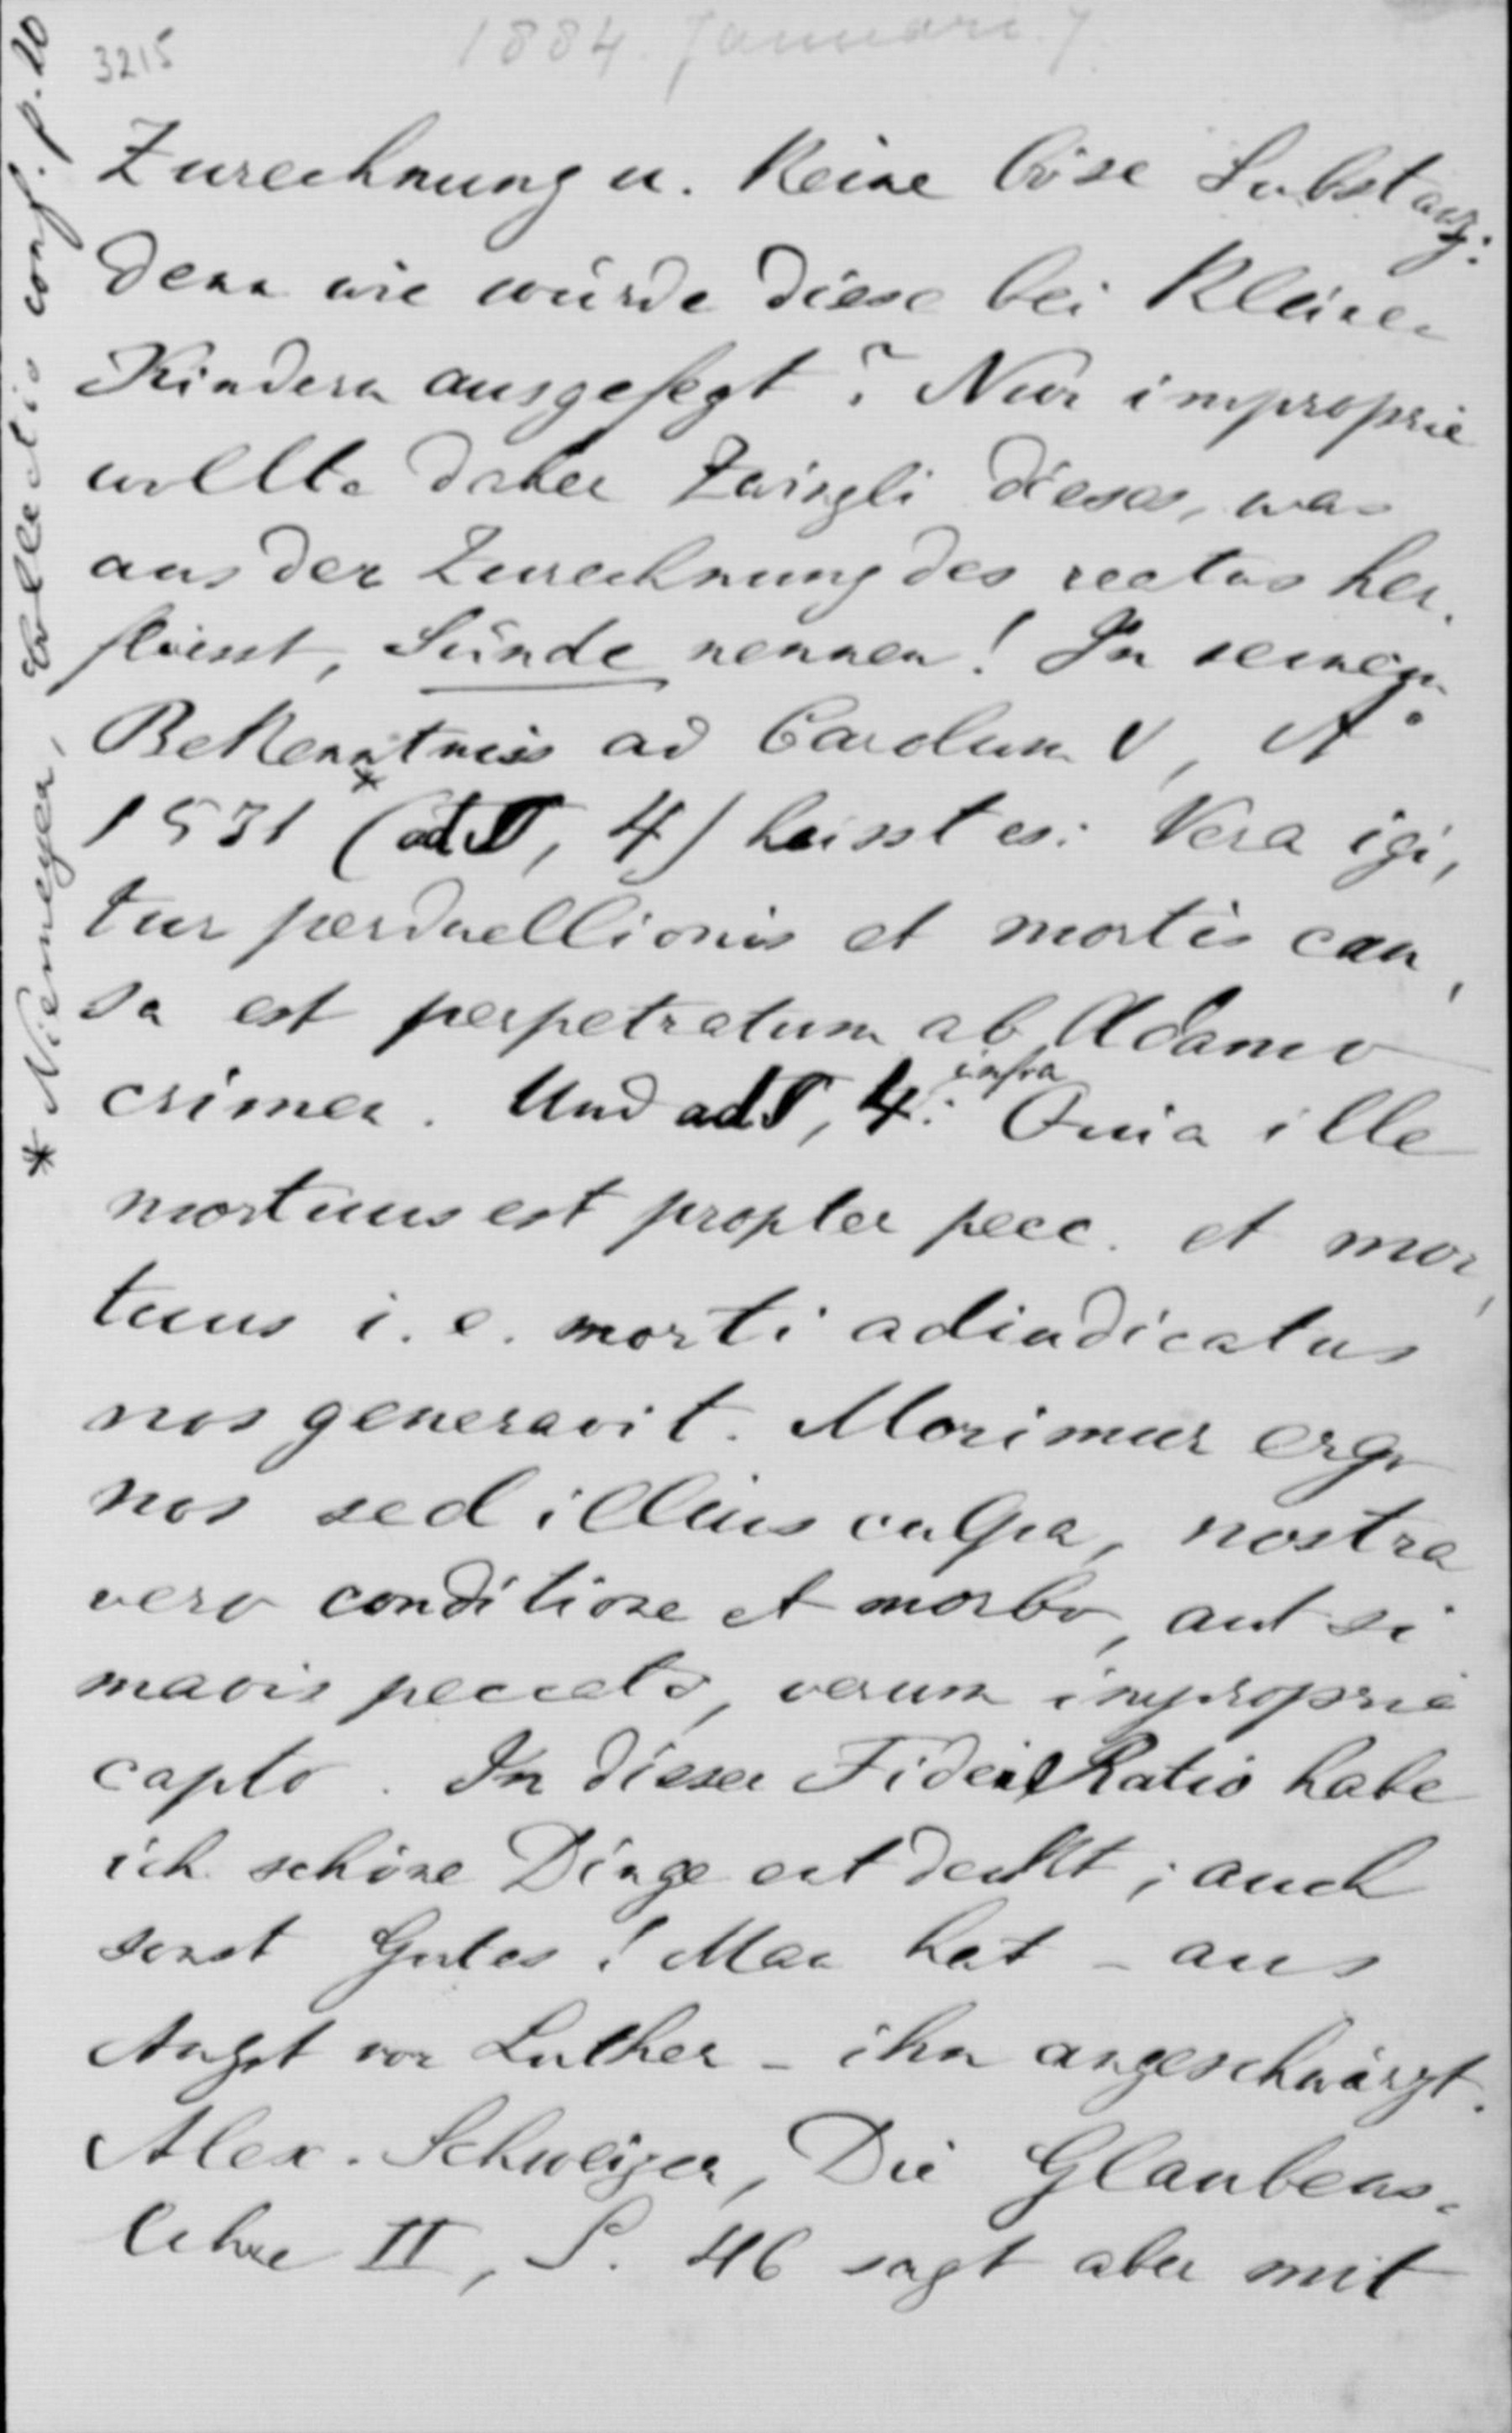 3215
1884. Januari 7.
Zurechnung u. keine böse Substanz:
denn wie würde diese bei kleinen
Kindern ausgefegt? Nur improprie
wollte daher Zwingli dieses, was
aus der Zurechnung des reatus her,
fliesst, Sünde nennen! In seinem
Bekenntniss ad Carolum V, A°
1531 * (ad 4) heisst es: Vera igi,
tur perduellionis et mortis cau,
sa est perpetratum ab Adamo
crimen. Und ad 4: infra Quia ille
mortuus est propter pecc. et mor,
tuus i. e. morti adiudicatus
nos generavit. Morimur ergo
nos sed illius culpa, nostra
vero conditione et morbo, aut si
mavis peccato, verum improprie
capto. In dieser Fidei Ratio habe
ich schöne Dinge entdeckt; auch
sonst Gutes! Man hat - aus
Angst vor Luther - ihn angeschwärzt.
Alex. Schweizer, Die Glaubens-
lehre II, S. 46 sagt aber mit
* Niemeyer, Collectio conf. p. 20